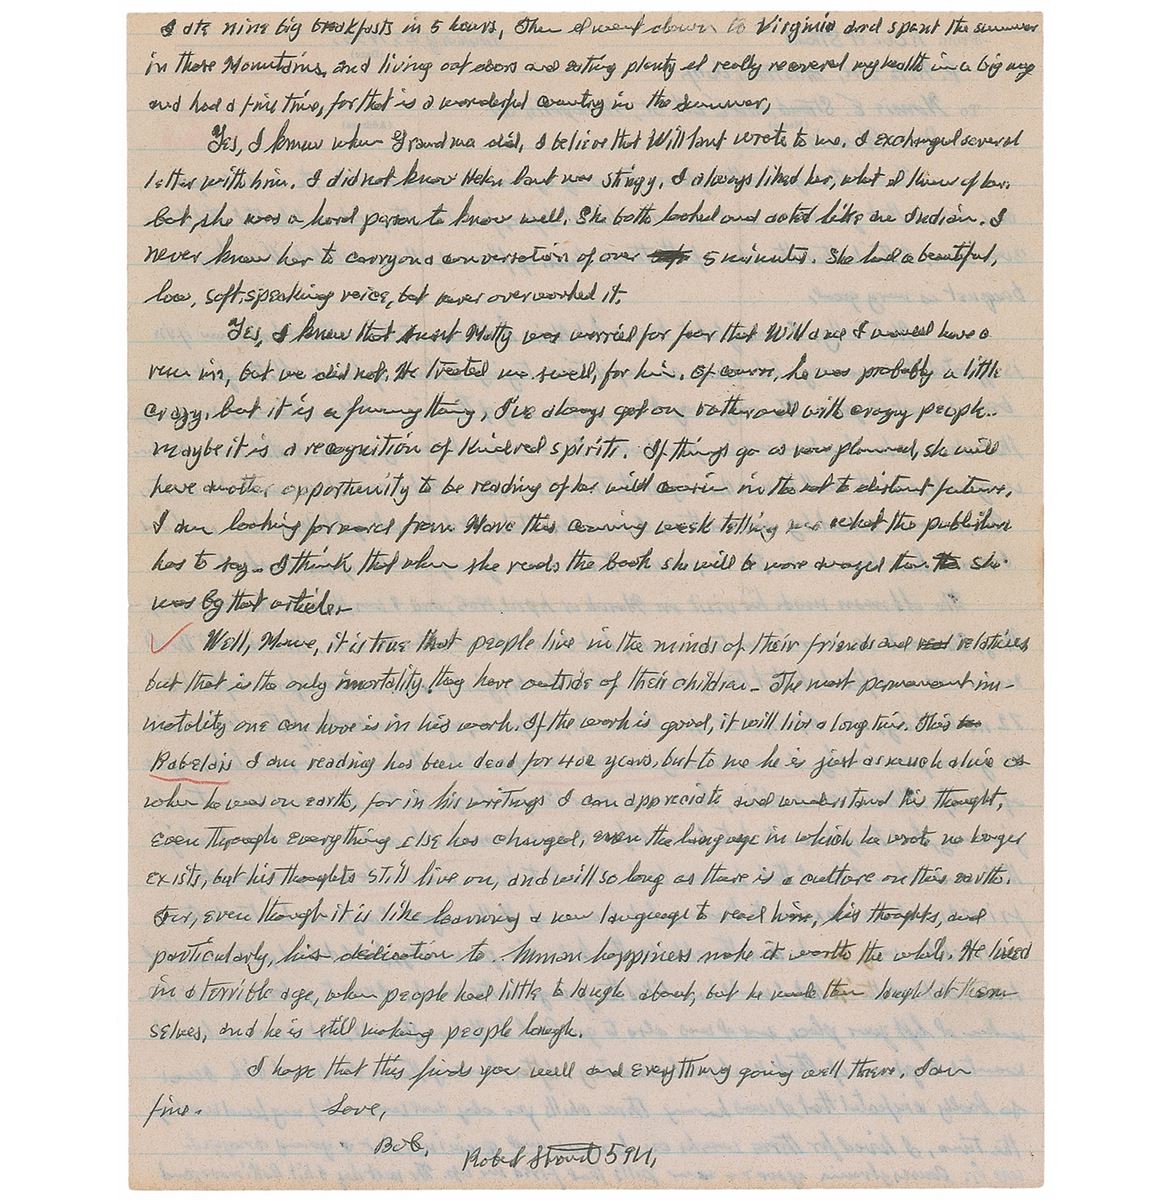 I ate nine big breakfasts in 5 hours, Then I went down to Virginia and spent the summer
in those Mountains, and living out doors and eating plenty I really recovered my health in a big way
and had a fine time, for that is a wonderful country in the summer,
Yes, I knew when Grandma died, I believe that Will wrote to me. I exchanged several
letter with him. I did not know Helen was stingy, I always liked her, what I knew of her.
But, she was a hard person to know well. She both looked and acted like an Indian. I
never knew her to carry on a conversation of over 5 minutes. She had a beautiful,
low, soft, speaking voice, but never overworked it.
Yes, I knew that Aunt Matty was worried for fear that Will and I would have a
run in, but we did not. He treated me swell, for him. Of course, he was probably a little
crazy, but it is a funny thing, I've always got on rather well with crazy people..
maybe it is a recognition of kindred spirits. If things go as now planned, she will
have another opportunity to be reading of her wild cousin in the not to distant future.
I am looking forward from this coming week telling me what the publisher
has to say. I think that when she reads the book she will be more amazed than she
was by that article.
Well, Mame, it is true that people live in the minds of their friends and relatives
but that is the only imortality they have outside of their children. The most permanent im-
motality one can have is in his work. If the work is good, it will live a long time. This
Rabelais I am reading has been dead for 400 years, but to me he is just as much alive as
when he was on earth, for in his writings I can appreciate and understand his thought,
even through everything else has changed, even the language in which he wrote no longer
exists, but his thoughts still live on, and will so long as there is a culture on this earth.
For, even though it is like learning a new language to read him, his thoughts, and
particularly, his dedication to human happiness make it worth the while. He lived
in a terrible age, when people had little to laugh about, but he made them laugh at them
selves, and he is still making people laugh.
I hope that this finds you well and everything going well there. I am
fine.
Love,
Bob,
Robert Stroud 594,